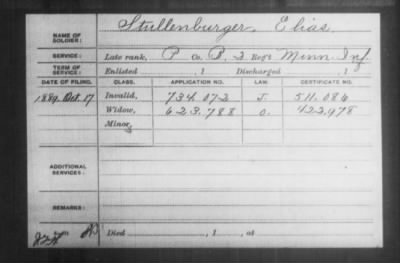 NAME OF SOLDIER: Stullenburger, Elias
SERVICE: Late rank, P Co. B, 2 Reg't Minn. Inf.
TERM OF SERVICE: Enlisted , 1 Discharged , 1
DATE OF FILING. CLASS. APPLICATION NO. LAW. CERTIFICATE NO.
1889. Oct. 17 Invalid, 734.072 J. 511.086
Widow, 623.788 O. 423.978
Minor,
ADDITIONAL SERVICES:
REMARKS:
Died , 1 , at